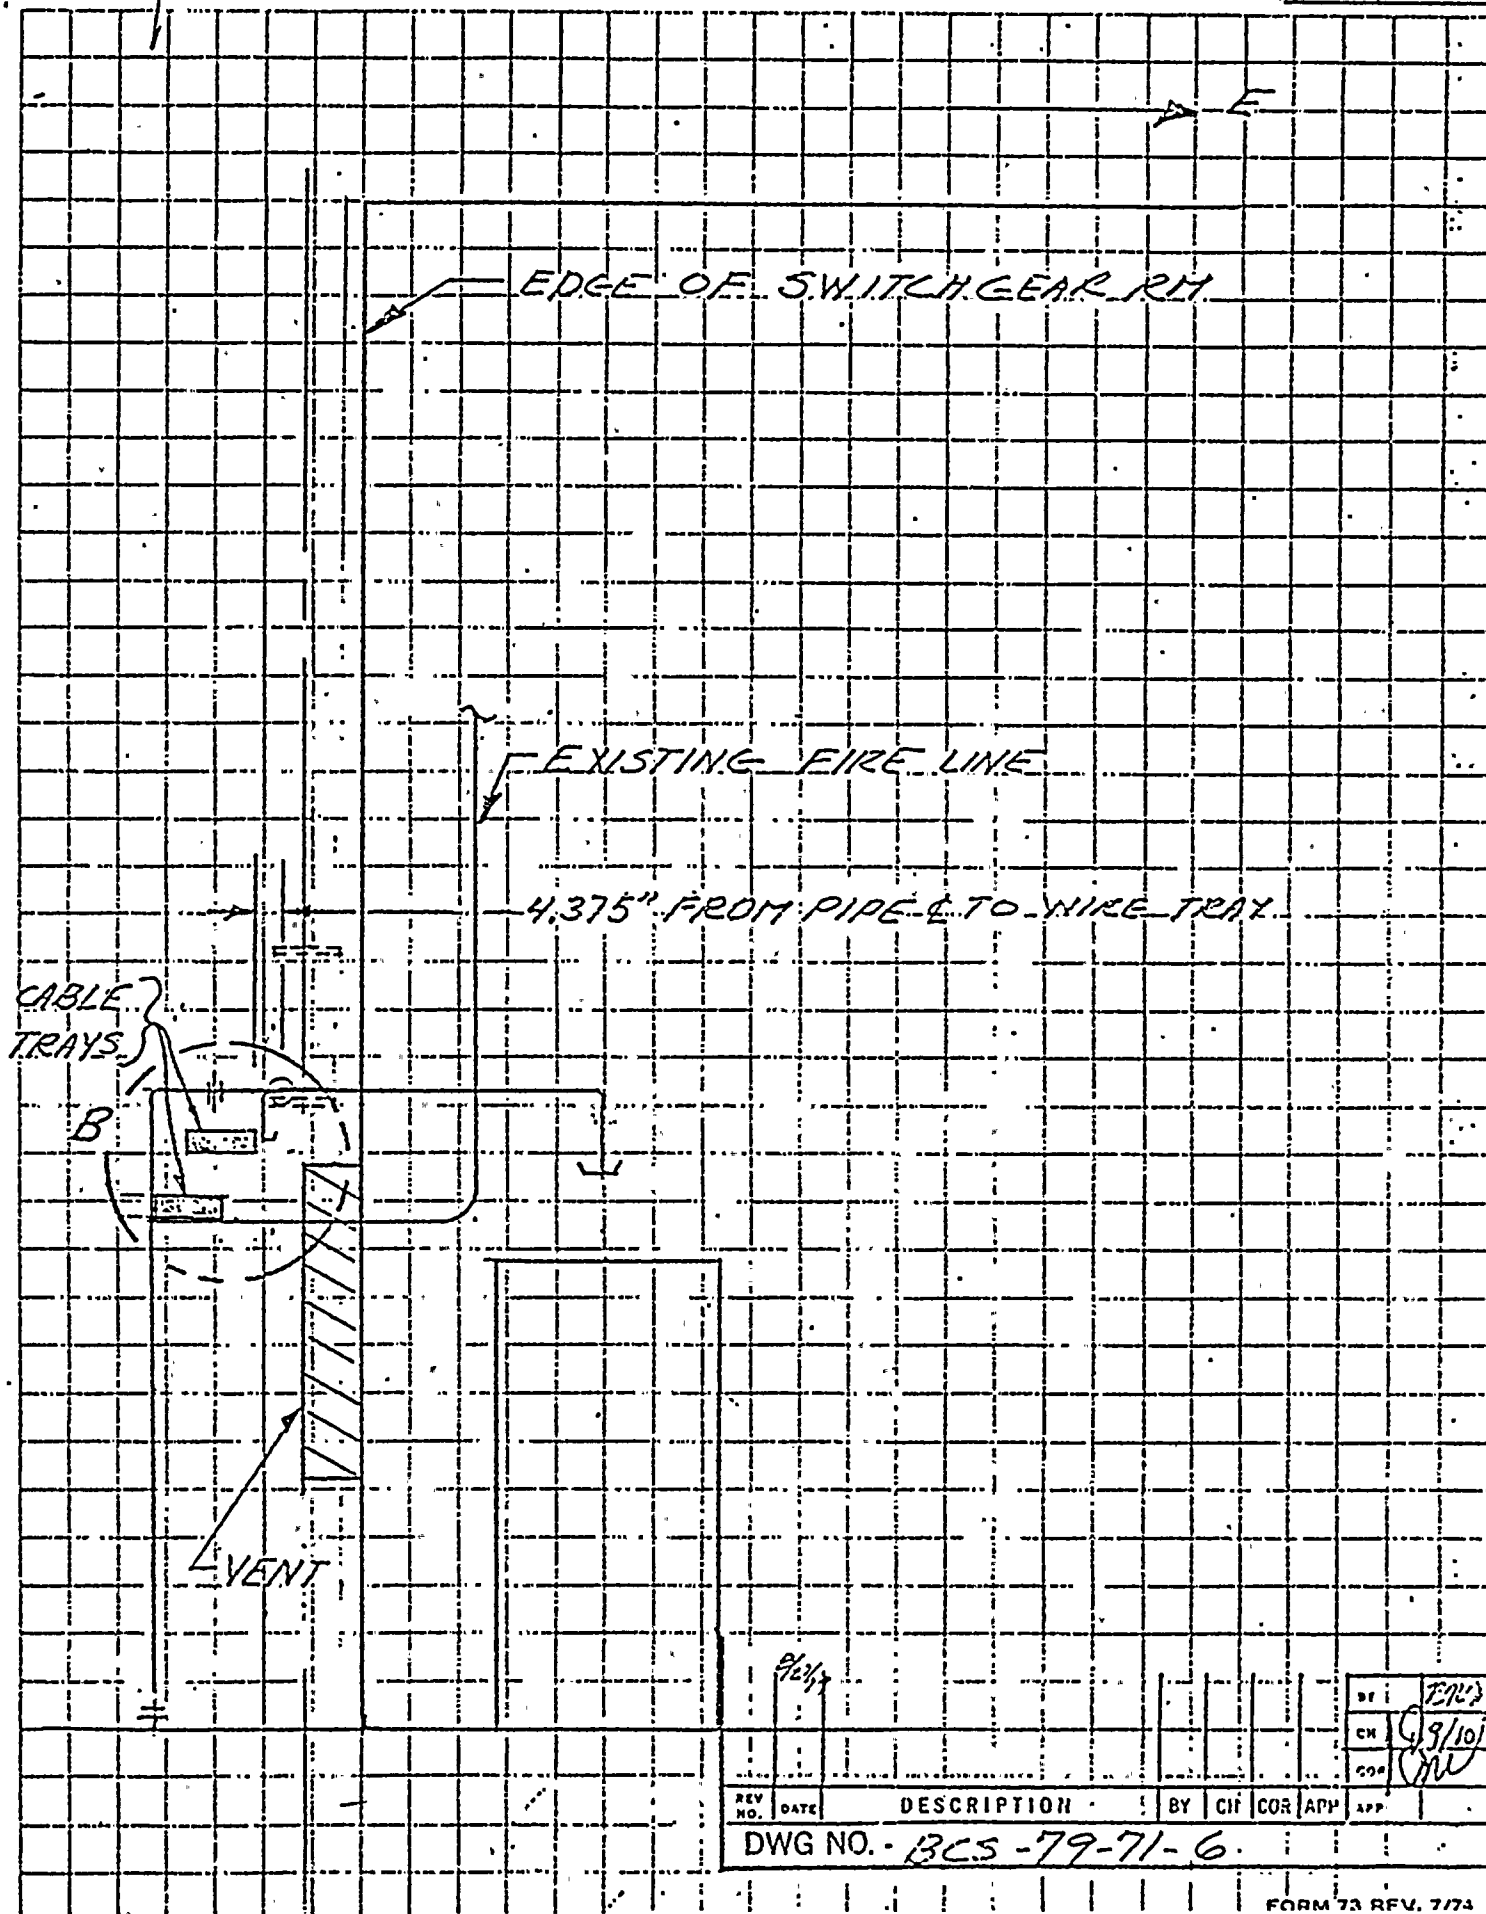 E
EDGE OF SWITCHGEAR RM
EXISTING FIRE LINE
4.375" FROM PIPE ℄ TO WIRE TRAY
CABLE
TRAYS
B
VENT
BY
CH 9/10
COR
REV NO. DATE DESCRIPTION BY CH COR APP APP
DWG NO. - BCS-79-71-6
FORM 73 REV. 7/74